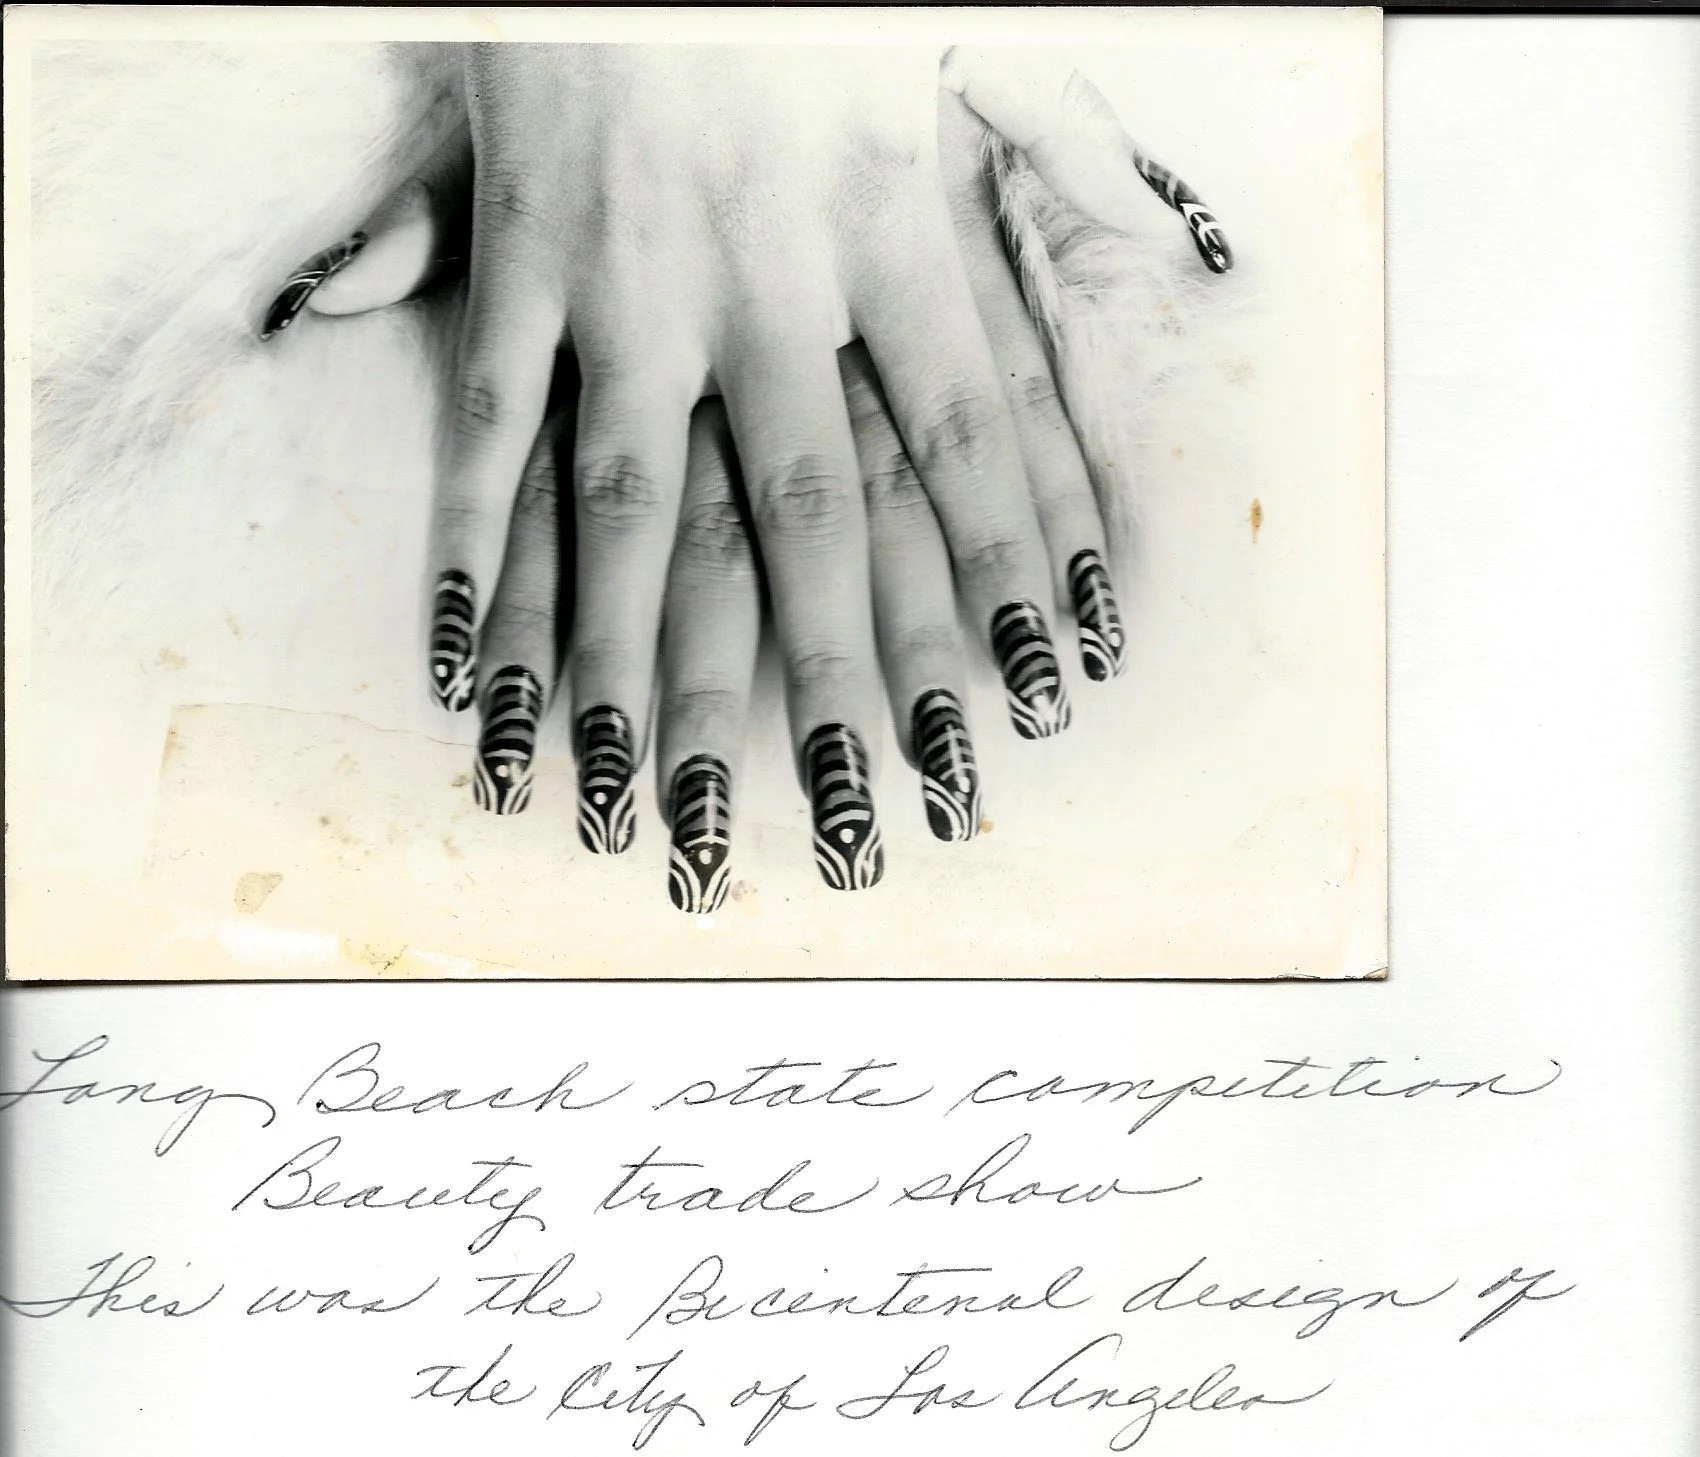 Long Beach state competition
Beauty trade show
This was the Bicentenal design of
the City of Los Angeles